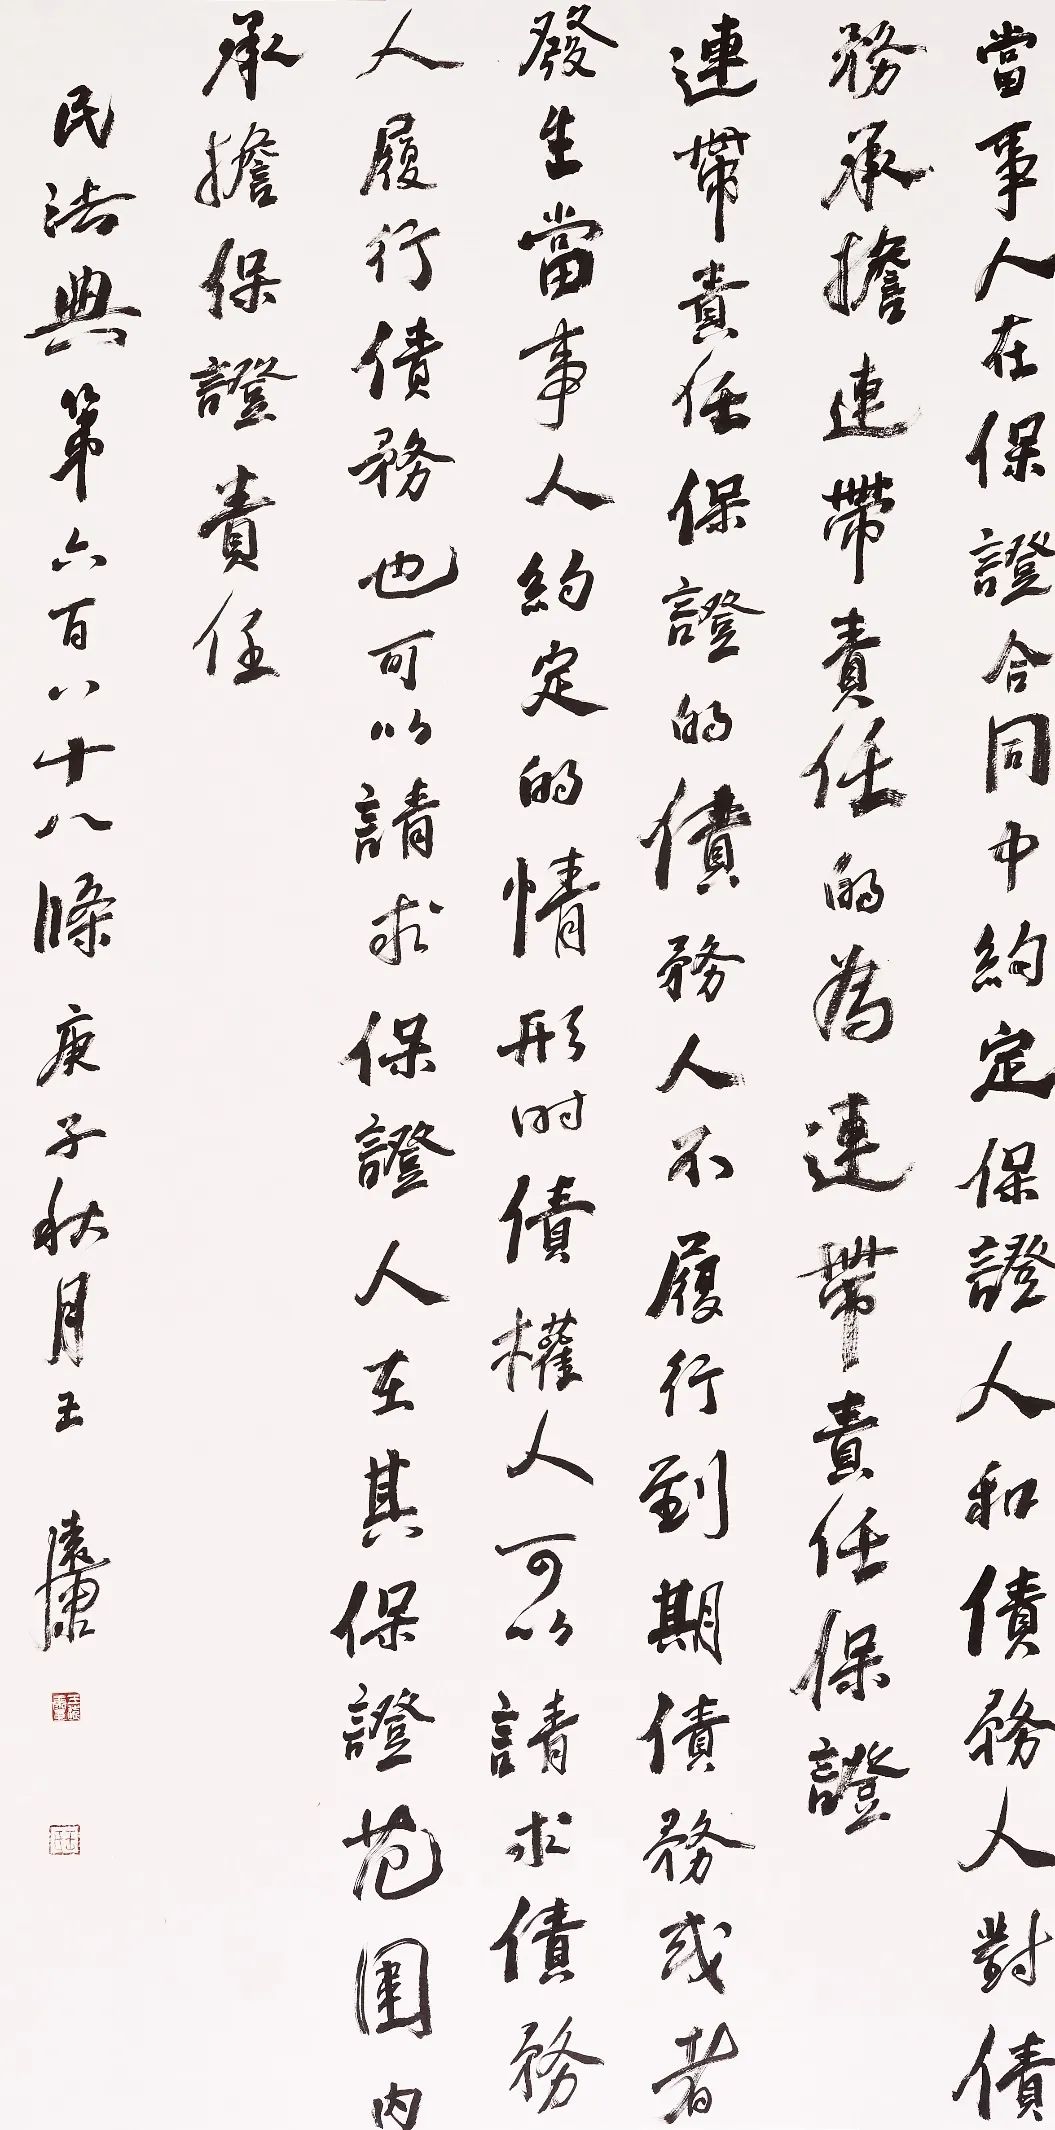 當事人在保證合同中約定保證人和債務人對債
務承擔連帶責任的為連帶責任保證
連帶責任保證的債務人不履行到期債務或者
發生當事人約定的情形时債權人可以請求債務
人履行債務也可以請求保證人在其保證范圍内
承擔保證責任
民法典第六百八十八條庚子秋月王